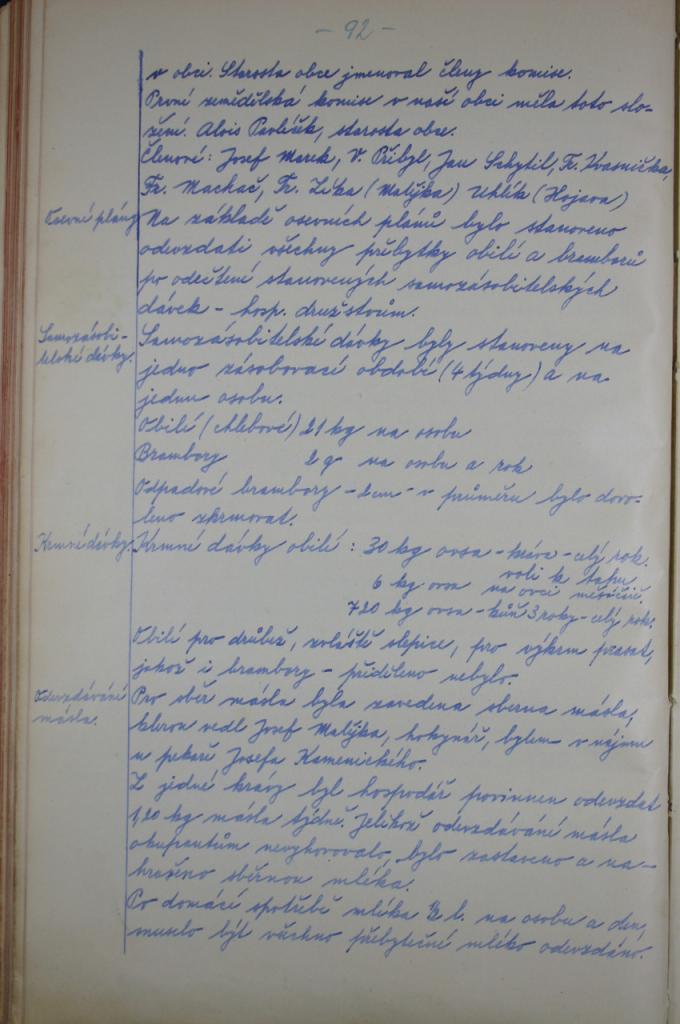 - 92 -
v obci. Starosta obce jmenoval členy komise.
První zemědělská komise v naší obci měla toto slo-
žení. Alois Pavlíček, starosta obce.
Členové: Josef Marek, V. Přibyl, Jan Schytil, Fr. Kvasnička,
Fr. Machač, Fr. Zíka (Malýka) Uhlík (Hojava)
Osevní plány
Na základě osevních plánů bylo stanoveno
odevzdati všechny přebytky obilí a bramborů
po odečtení stanovených samozásobitelských
dávek - hosp. družstvům.
Samozásobi-
telské dávky.
Samozásobitelské dávky byly stanoveny na
jedno zásobovací období (4 týdny) a na
jednu osobu.
Obilí (chlebové) 21 kg na osobu
Brambory 2 q na osobu a rok
Odpadové brambory - 2 cm - v průměru bylo dovo-
leno zkrmovat.
Krmné dávky.
Krmné dávky obilí: 30 kg ovsa - kráva - celý rok.
voli k tahu
6 kg ovsa na ovci měsíčně.
720 kg ovsa - kůň 3 roky - celý rok.
Obilí pro drůbež, zvláště slepice, pro výkrm prasat,
jakož i brambory - přiděleno nebylo.
Odevzdávání
másla.
Pro sběr másla byla zavedena sběrna másla,
kterou vedl Josef Malýka, hokynář, bytem v nájmu
u pekaře Josefa Kamenického.
Z jedné krávy byl hospodář povinnen odevzdat
1,20 kg másla týdně. Jelikož odevzdávání másla
okupantům nevyhovovalo, bylo zastaveno a na-
hraženo sběrnou mléka.
Po domácí spotřebě mléka ½ l. na osobu a den,
muselo být všechno přebytečné mléko odevzdáno.